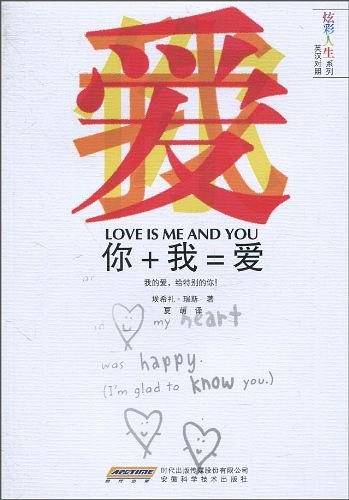 炫彩人生系列
英汉对照
爱
LOVE IS ME AND YOU
你+我=爱
我的爱，给特别的你！
埃希礼·瑞斯 著
夏萌 译
my heart
was happy.
(I'm glad to know you.)
APGTIME
时代出版
时代出版传媒股份有限公司
安徽科学技术出版社